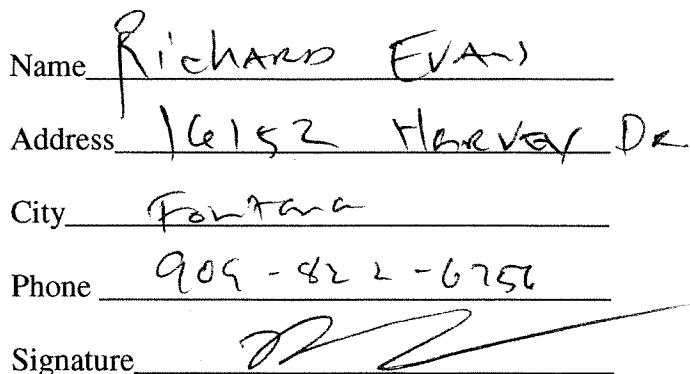 Name Richard Evans
Address 16152 Harvey Dr
City Fontana
Phone 909-822-6756
Signature